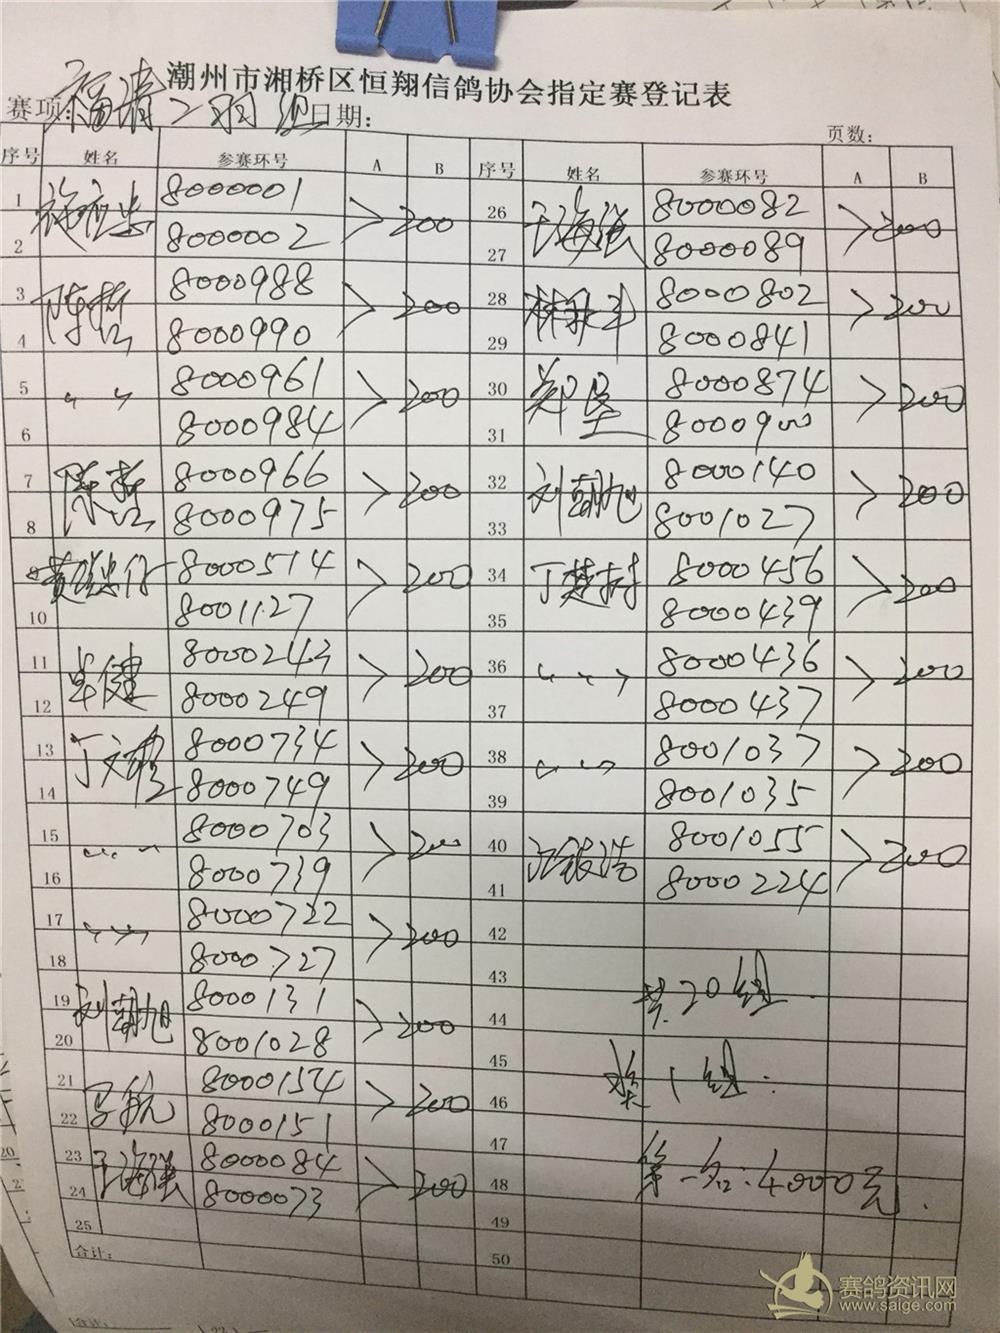 潮州市湘桥区恒翔信鸽协会指定赛登记表
赛项:福清二羽组日期:
页数:
序号 姓名 参赛环号 A B 序号 姓名 参赛环号 A B
1 8000001 >200 26 于海强 8000082 >200
2 8000002 27 8000089
3 陈哲 8000988 >200 28 8000802 >200
4 8000990 29 8000841
5 〃 8000961 >200 30 郑坚 8000874 >200
6 8000984 31 8000900
7 陈哲 8000966 >200 32 刘朝旭 8000140 >200
8 8000975 33 8001027
8000514 >200 34 丁楚村 8000456 >200
10 8001127 35 8000439
11 8000243 >200 36 〃 8000436 >200
12 8000249 37 8000437
13 8000734 >200 38 〃 8001037 >200
14 8000749 39 8001035
15 〃 8000703 >200 40 8001055 >200
16 8000739 41 8000224
17 〃 8000722 >200 42
18 8000727 43
19 刘朝旭 8000131 >200 44 共20组
20 8001028 45
21 8000154 >200 46 奖1组:
22 8000151 47
23 于海强 8000084 >200 48 第一名:4000元.
24 8000073 49
25 50
合计:
赛鸽资讯网
www.saige.com